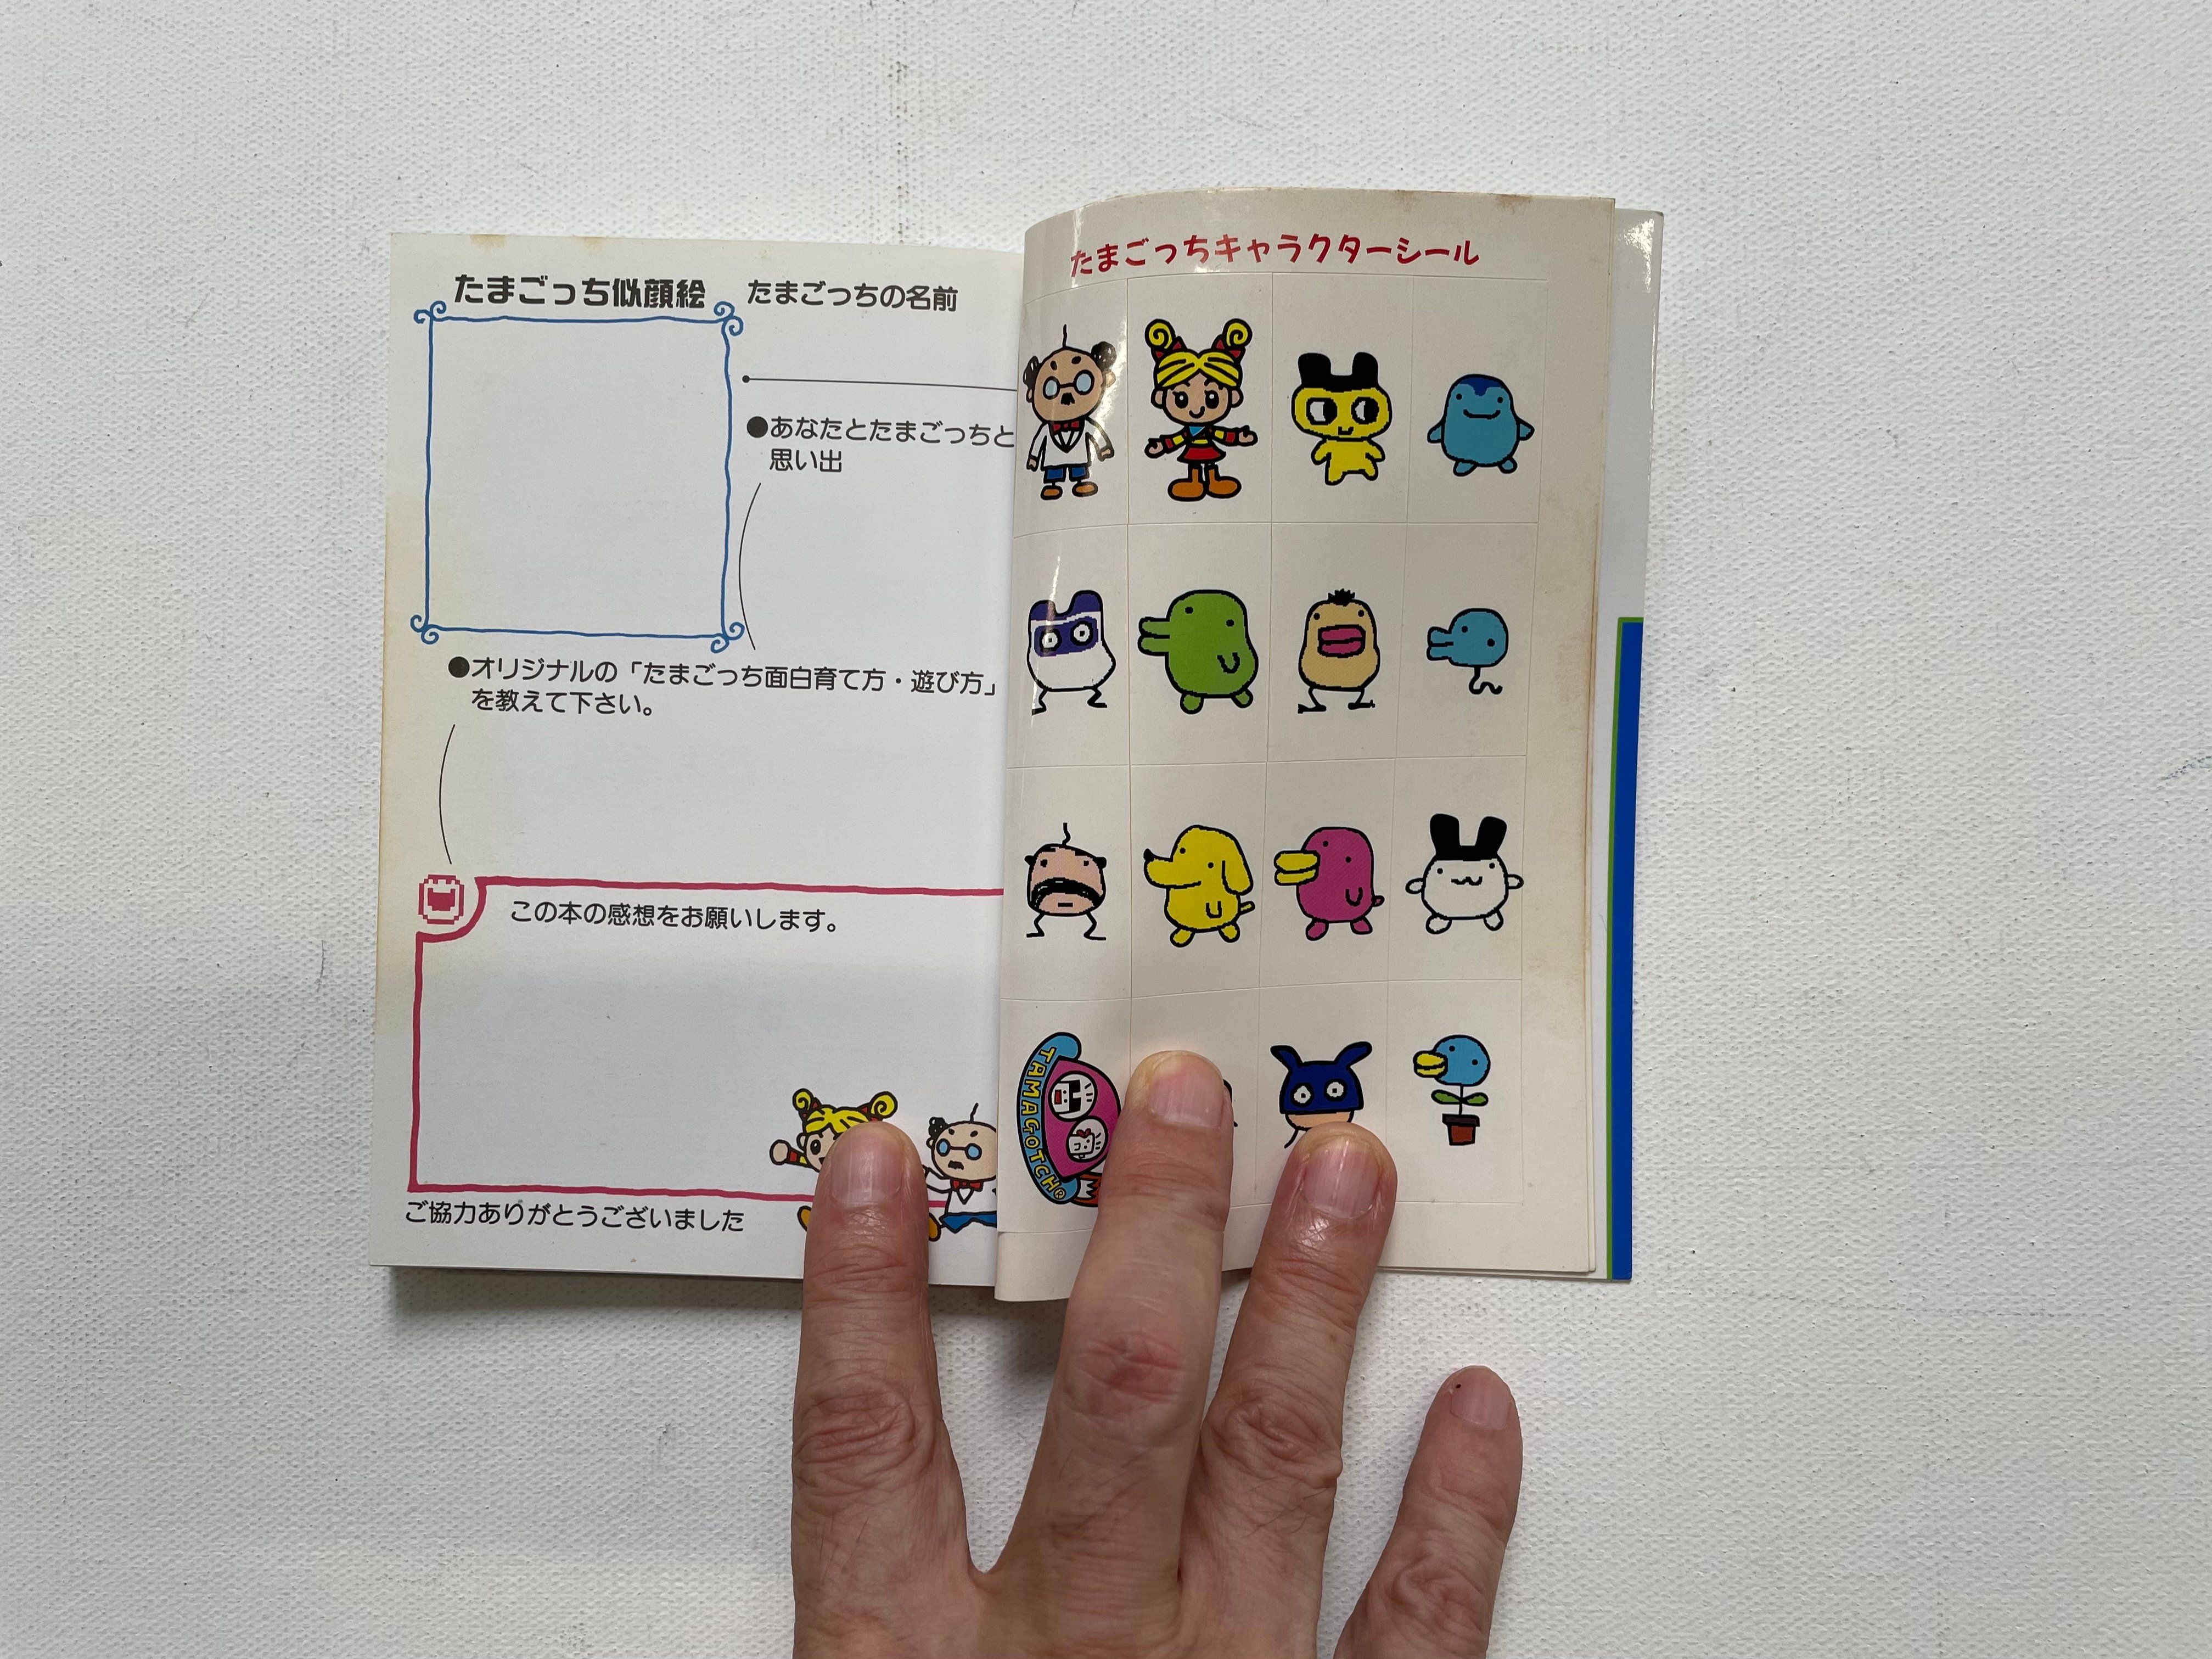 たまごっち似顔絵
たまごっちの名前
●あなたとたまごっちと
思い出
●オリジナルの「たまごっち面白育て方・遊び方」
を教えて下さい。
この本の感想をお願いします。
ご協力ありがとうございました
たまごっちキャラクターシール
TAMAGOTCH®